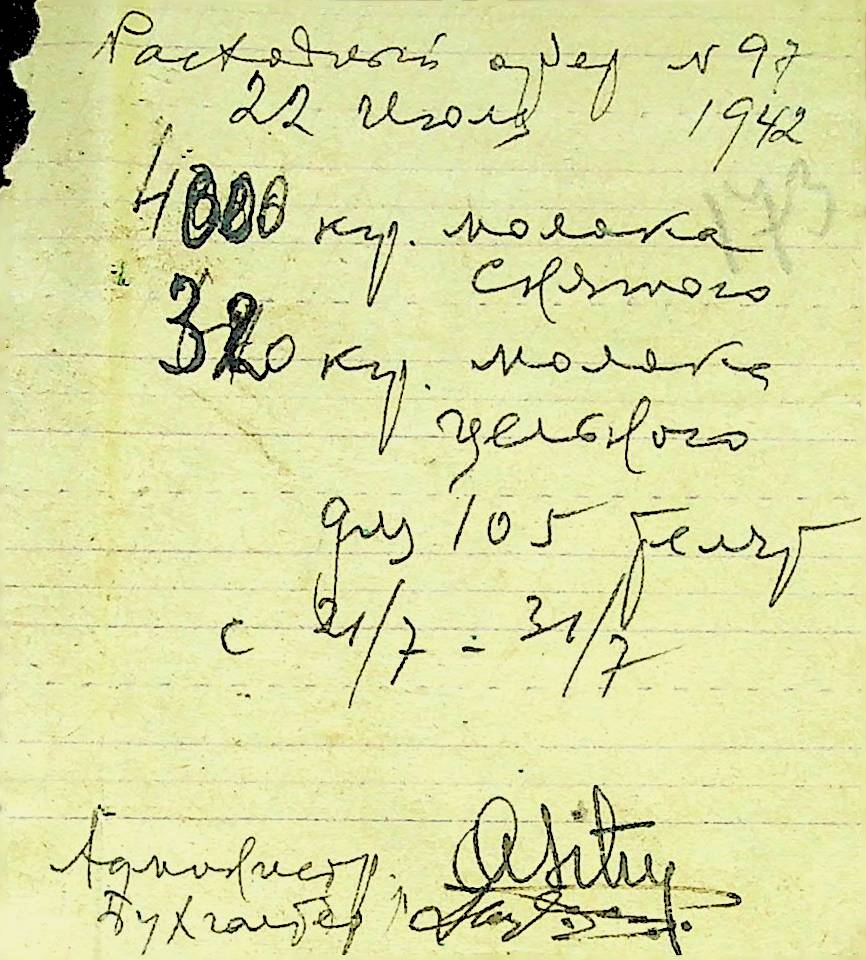 Расходный ордер N 97
22 июля 1942
173
4000 кгр. молока
снятого
320 кгр. молока
цельного
для 105 телят
с 21/7 - 31/7
Администр.
Бухгалтер